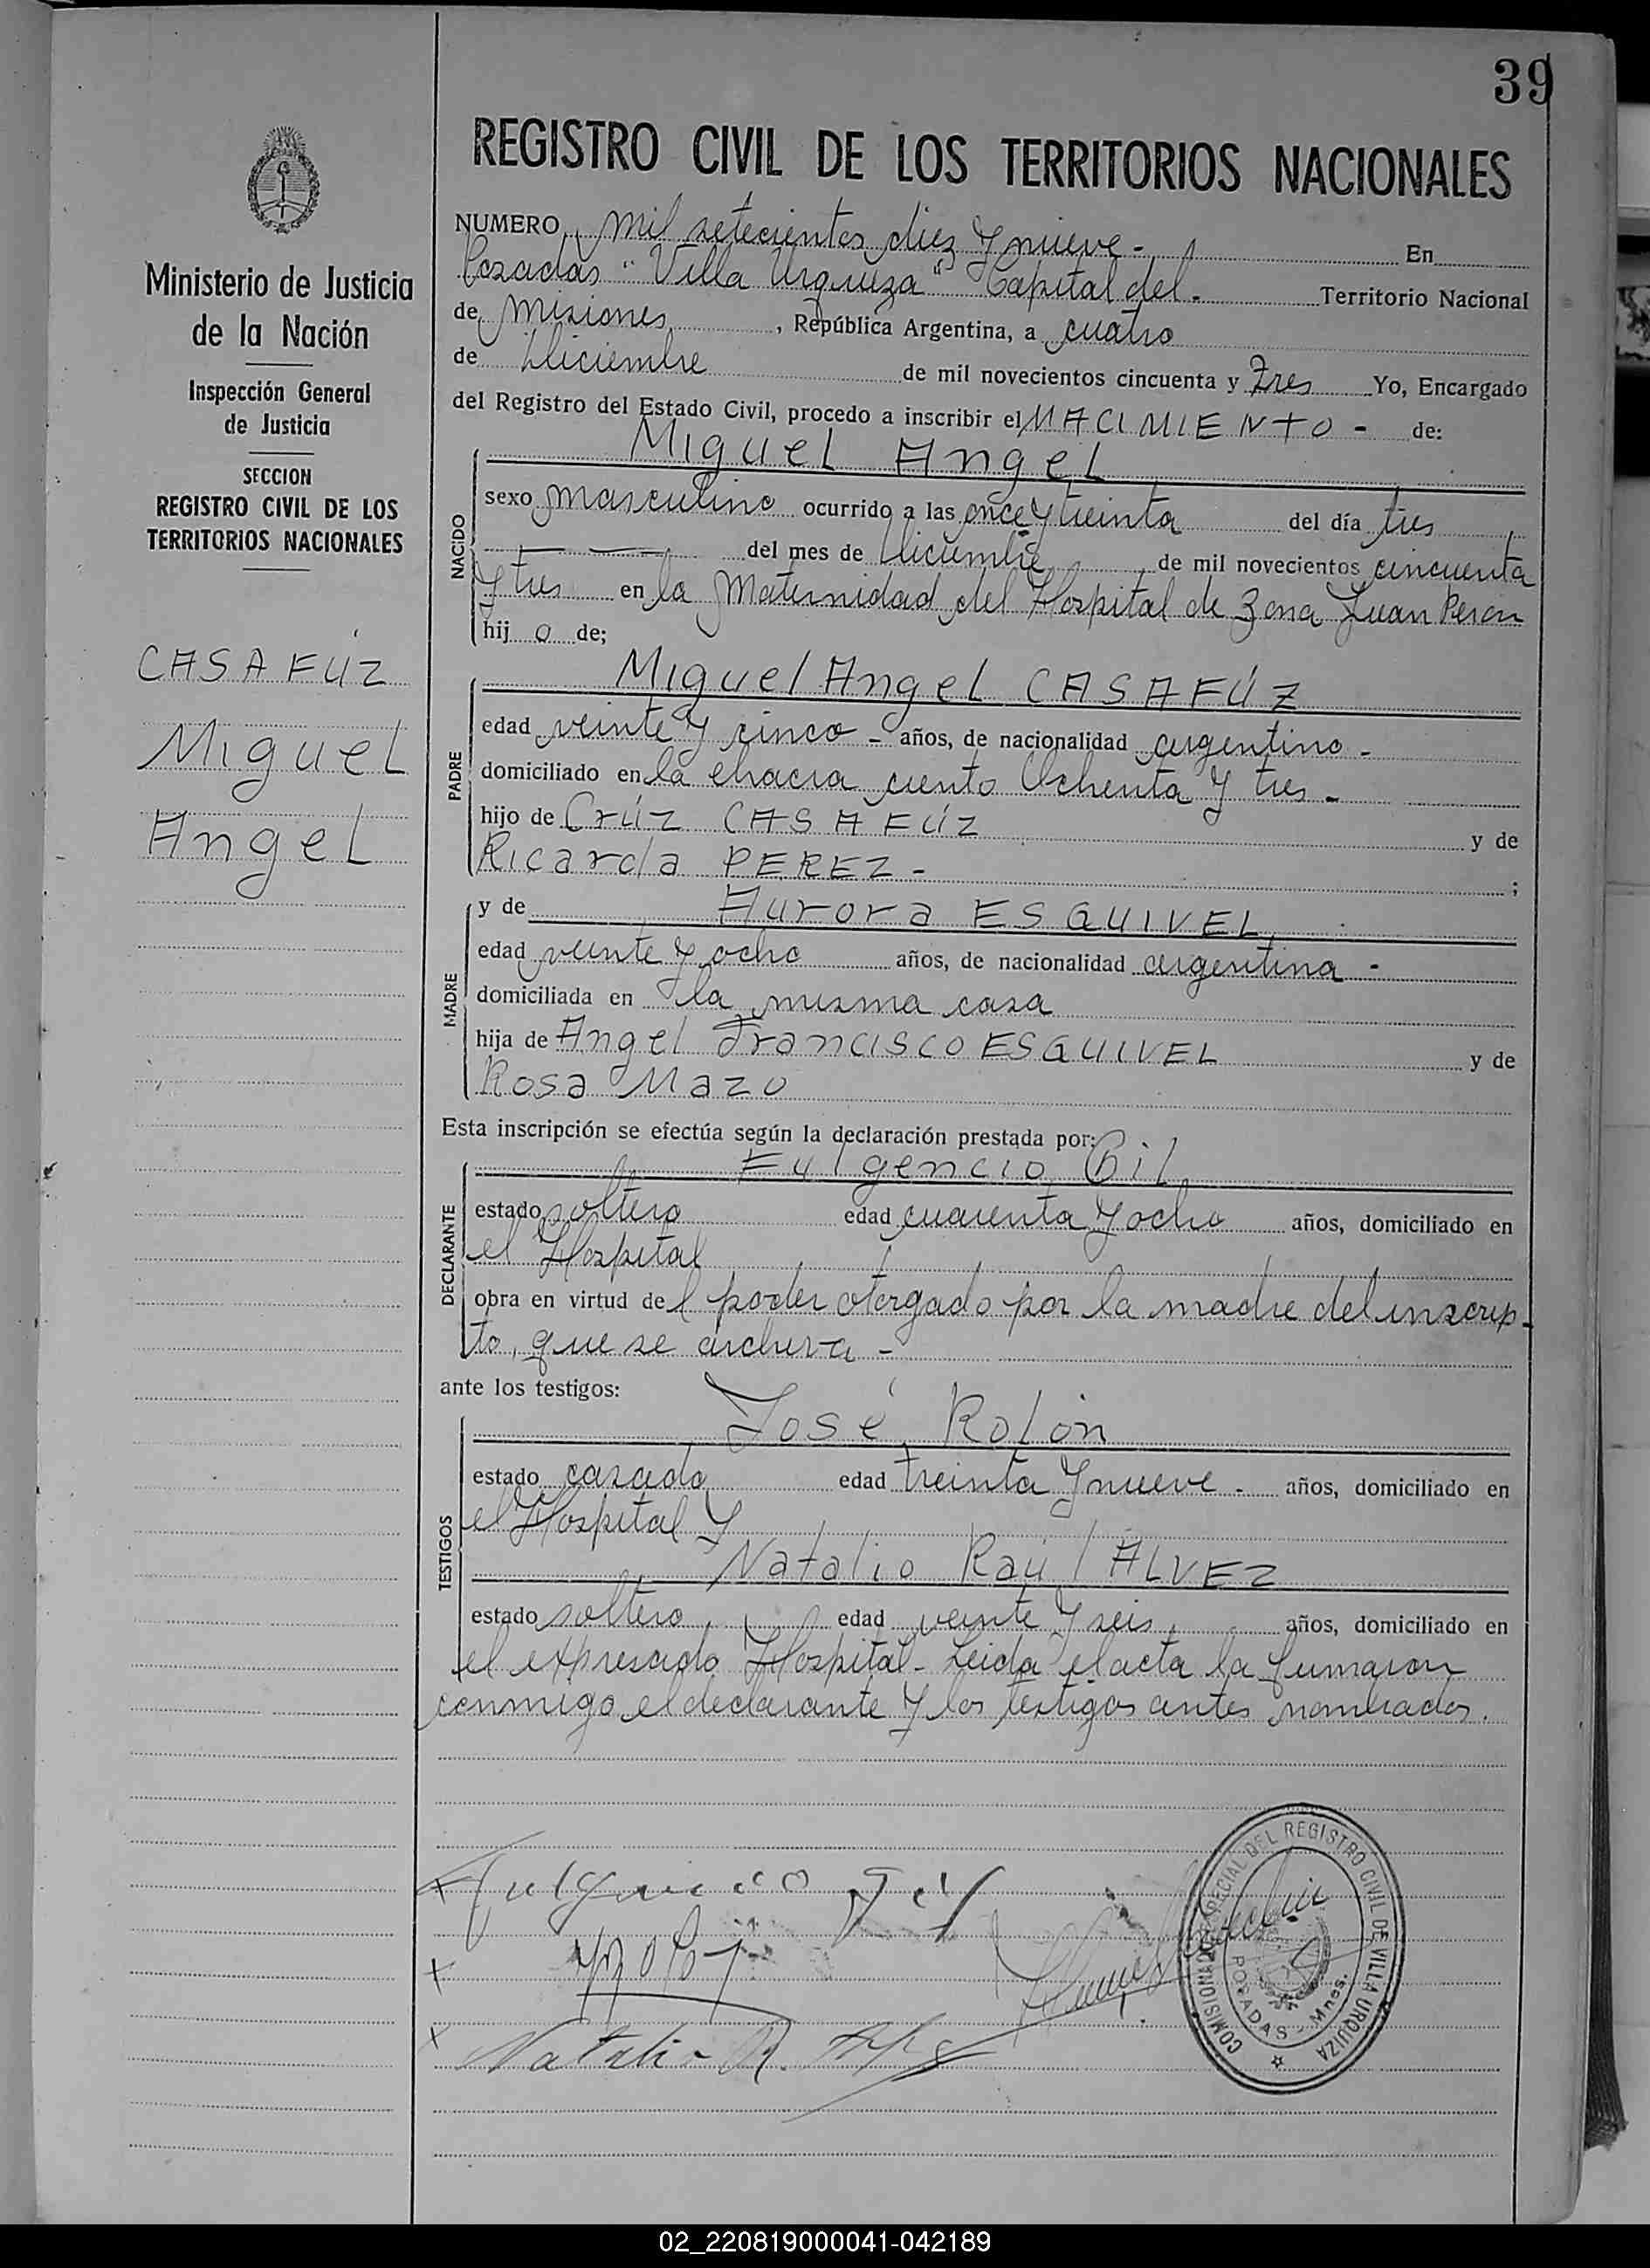 39
REGISTRO CIVIL DE LOS TERRITORIOS NACIONALES
Ministerio de Justicia
de la Nación
Inspección General
de Justicia
SECCION
REGISTRO CIVIL DE LOS
TERRITORIOS NACIONALES
CASAFÚZ
Miguel
Angel
NUMERO mil setecientos diez y nueve - En
Posadas "Villa Urquiza" Capital del - Territorio Nacional
de Misiones, República Argentina, a cuatro
de Diciembre de mil novecientos cincuenta y tres Yo, Encargado
del Registro del Estado Civil, procedo a inscribir el NACIMIENTO - de:
Miguel Angel
NACIDO
sexo masculino ocurrido a las once y treinta del día tres
del mes de Diciembre de mil novecientos cincuenta
y tres en la Maternidad del Hospital de Zona Juan Peron
hij o de;
Miguel Angel CASAFÚZ
PADRE
edad veinte y cinco - años, de nacionalidad argentino -
domiciliado en la chacra ciento Ochenta y tres -
hijo de Crúz CASAFÚZ y de
Ricarda PEREZ - ;
y de Aurora ESQUIVEL
MADRE
edad veinte y ocho años, de nacionalidad argentina -
domiciliada en la misma casa
hija de Angel Francisco ESQUIVEL y de
Rosa Mazo
Esta inscripción se efectúa según la declaración prestada por:
Fulgencio Gil
DECLARANTE
estado soltero edad cuarenta y ocho años, domiciliado en
el Hospital
obra en virtud del poder otorgado por la madre del inscrip-
to, que se archiva -
ante los testigos:
José Rolón
TESTIGOS
estado casado edad treinta y nueve - años, domiciliado en
el Hospital y
Natalio Raúl ALVEZ
estado soltero edad veinte y seis años, domiciliado en
el expresado Hospital - Leida el acta la firmaron
conmigo el declarante y los testigos antes nombrados.
x Fulgencio Gil
x
x Natalio R.
COMISIONADO ESPECIAL DEL REGISTRO CIVIL DE VILLA URQUIZA
POSADAS - Mnes.
02_220819000041-042189